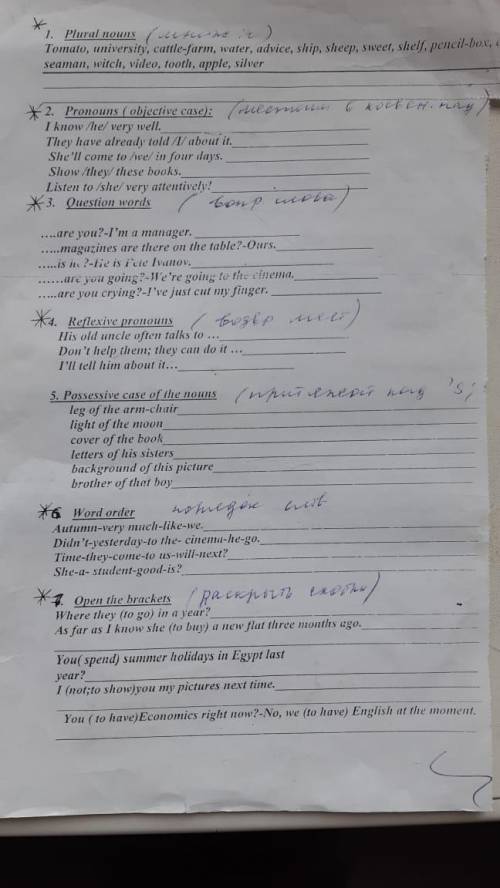 1. Plural nouns
Tomato, university, cattle-farm, water, advice, ship, sheep, sweet, shelf, pencil-box,
seaman, witch, video, tooth, apple, silver
2. Pronouns ( objective case):
I know /he/ very well.
They have already told /I/ about it.
She'll come to /we/ in four days.
Show /they/ these books.
Listen to /she/ very attentively!
3. Question words (вопр слова)
….are you?-I'm a manager.
…..magazines are there on the table?-Ours.
…..is he?-He is Pete Ivanov.
……are you going?-We're going to the cinema.
…..are you crying?-I've just cut my finger.
4. Reflexive pronouns (возвр мест)
His old uncle often talks to …
Don't help them; they can do it …
I'll tell him about it…
5. Possessive case of the nouns
leg of the arm-chair
light of the moon
cover of the book
letters of his sisters
background of this picture
brother of that boy
6 Word order порядок слов
Autumn-very much-like-we.
Didn't-yesterday-to the- cinema-he-go.
Time-they-come-to us-will-next?
She-a- student-good-is?
7. Open the brackets (раскрыть скобки)
Where they (to go) in a year?
As far as I know she (to buy) a new flat three months ago.
You( spend) summer holidays in Egypt last
year?
I (not;to show)you my pictures next time.
You ( to have)Economics right now?-No, we (to have) English at the moment.